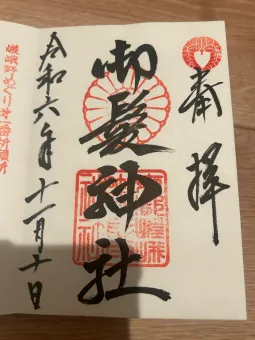 奉拝
御髪神社
令和六年十一月十日
嵯峨野めぐり